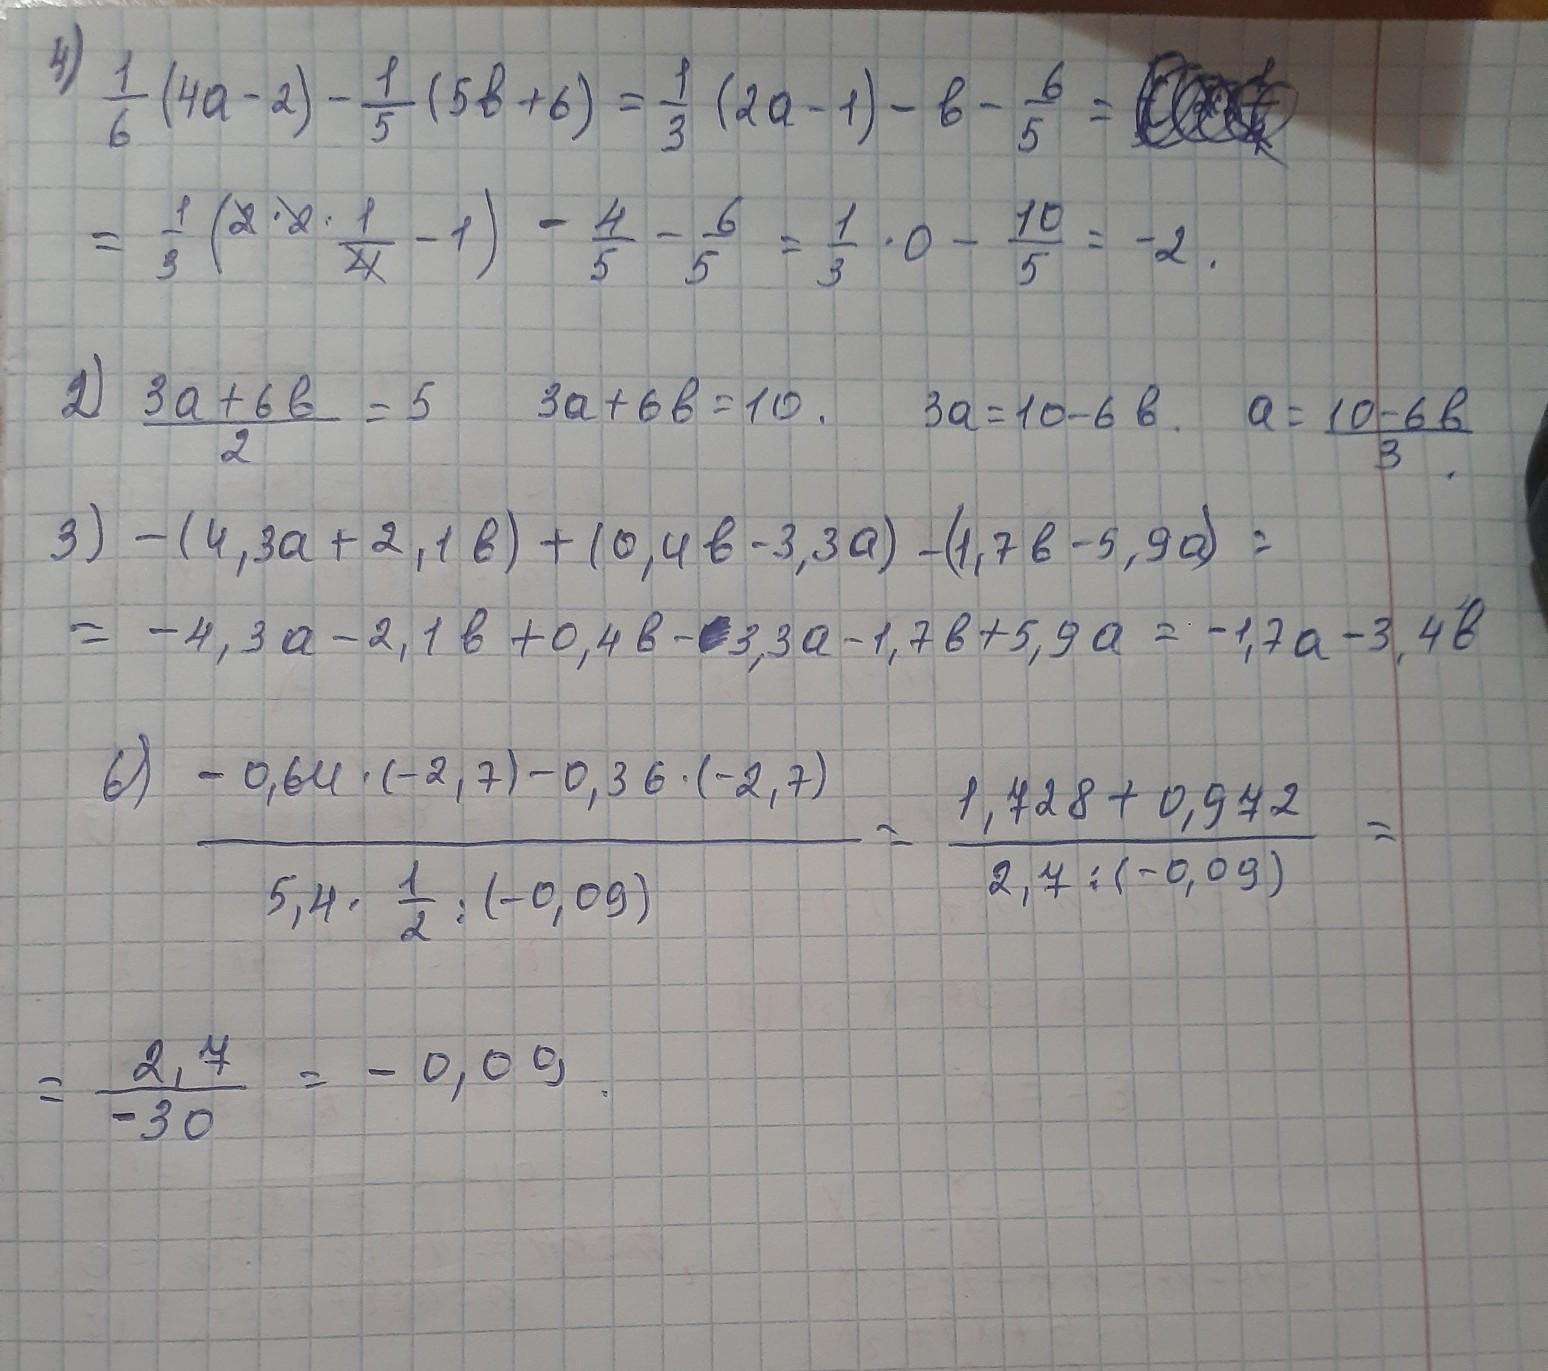 4) 1/6 (4а - 2) - 1/5 (5в + 6) = 1/3 (2а - 1) - в - 6/5 =
= 1/3 (2·2·1/4 - 1) - 4/5 - 6/5 = 1/3 · 0 - 10/5 = -2.
2) (3а + 6в)/2 = 5 3а + 6в = 10. 3а = 10 - 6в. а = (10 - 6в)/3.
3) -(4,3а + 2,1в) + (0,4в - 3,3а) - (1,7в - 5,9а) =
= -4,3а - 2,1в + 0,4в - 3,3а - 1,7в + 5,9а = -1,7а - 3,4в
6) (-0,64·(-2,7) - 0,36·(-2,7))/(5,4·1/2 : (-0,09)) = (1,728 + 0,972)/(2,7 : (-0,09)) =
= 2,7/-30 = -0,09.